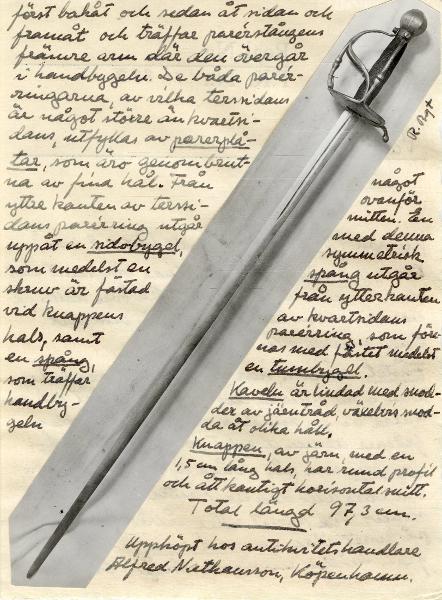 först bakåt och sedan åt sidan och
framåt och träffar parerstångens
främre arm där den övergår
i handbygeln. De båda parer-
ringarna, av vilka terssidans
är något större än kvartsi-
dans, utfyllas av parerplå-
tar, som äro genombrut-
na av fina hål. Från
yttre kanten av terssi-
dans parerring utgår
uppåt en sidobygel,
som medelst en
skruv är fästad
vid knappens
hals, samt
en spång,
som träffar
handby-
geln
något
ovanför
mitten. En
med denna
symmetrisk
spång utgår
från ytterkanten
av kvartsidans
parerring, som före-
nas med fästet medelst
en tumbygel.
Kaveln är lindad med snod-
der av järntråd, växelvis snod-
da åt olika håll.
Knappen, av järn, med en
1,5 cm lång hals, har rund profil
och åttkantigt horisontalsnitt.
Total längd 97,3 cm.
Uppköpt hos antikvitetshandlare
Alfred Nathansson, Köpenhamn.